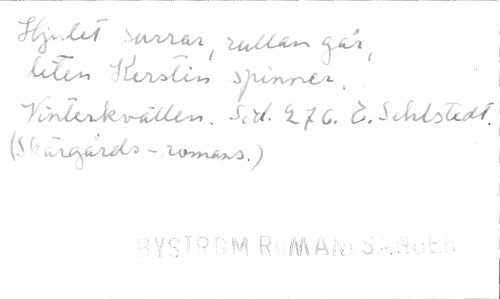 Hjulet surrar, rullan går,
liten Kerstin spinner.
Vinterkvällen. Sid. 276. E. Sehlstedt.
(Skärgårds-romans.)
BYSTRÖM ROMANI SÅNGER